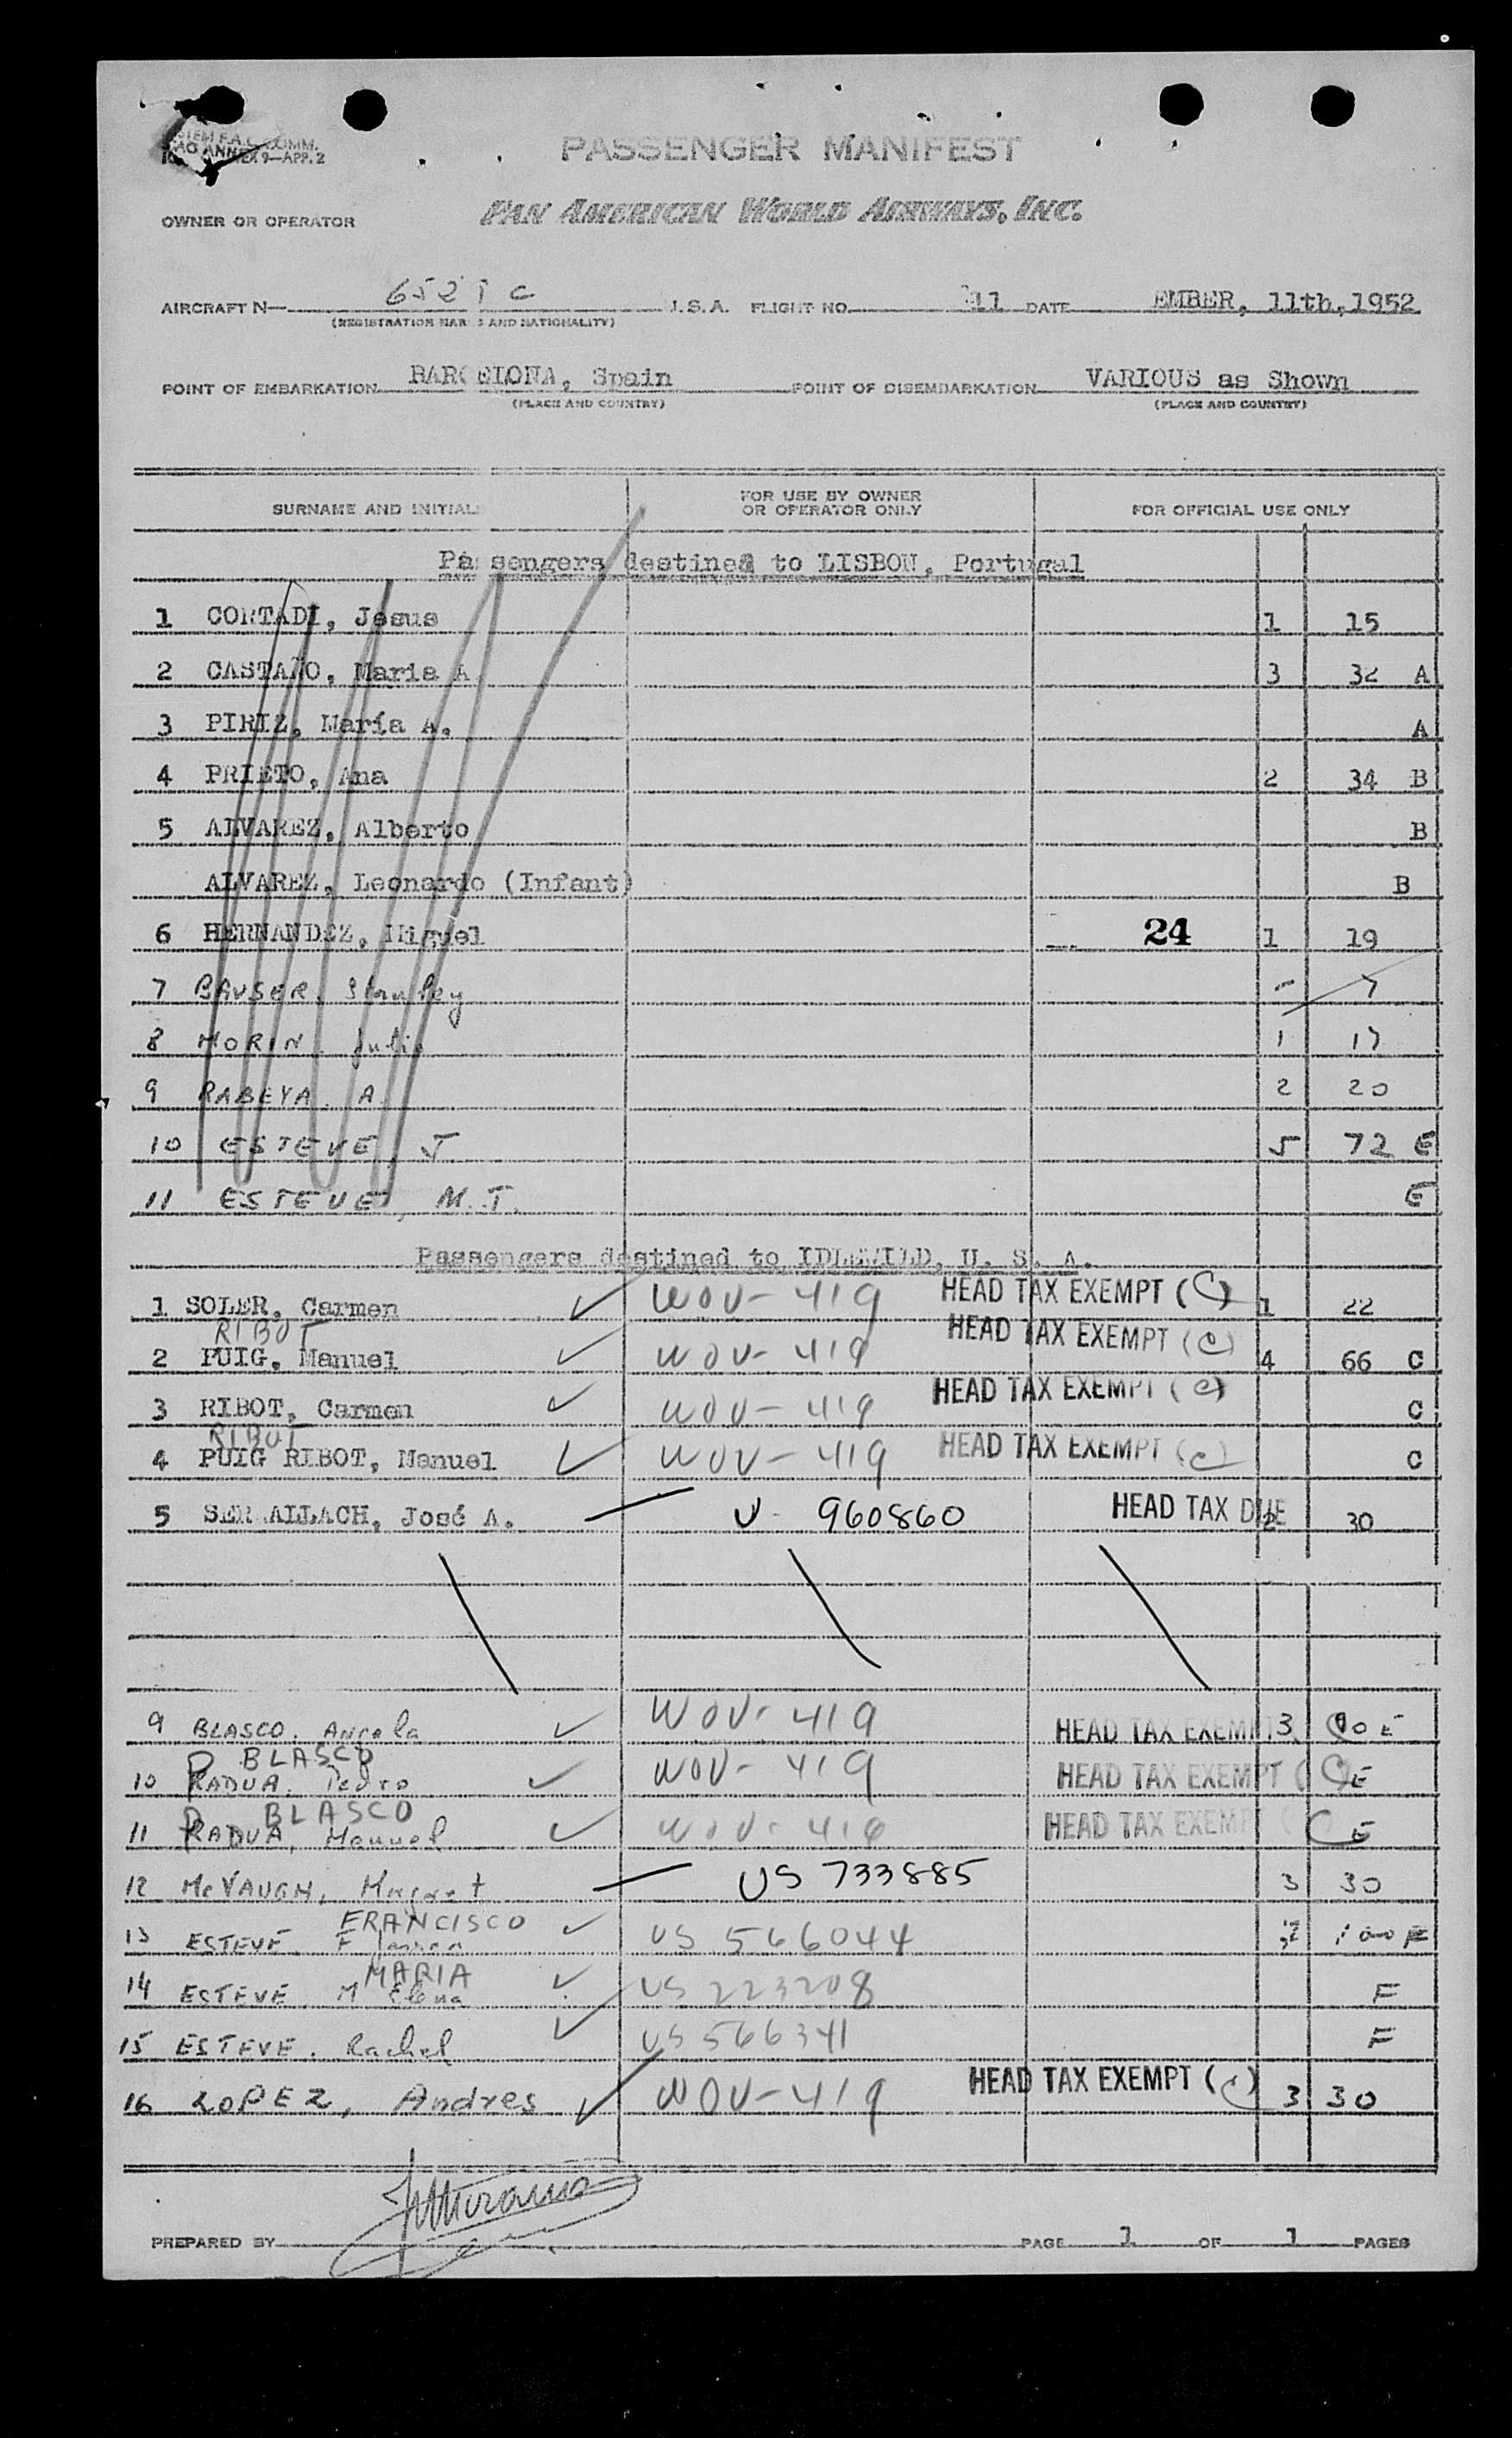 STEM F.A.L. COMM.
ICAO ANNEX 9—APP. 2
PASSENGER MANIFEST
OWNER OR OPERATOR PAN AMERICAN WORLD AIRWAYS, INC.
AIRCRAFT N— 652 C U.S.A. FLIGHT NO. 11 DATE EMBER, 11th, 1952
(REGISTRATION MARKS AND NATIONALITY)
POINT OF EMBARKATION BARCELONA, Spain POINT OF DISEMBARKATION VARIOUS as Shown
(PLACE AND COUNTRY) (PLACE AND COUNTRY)
SURNAME AND INITIALS FOR USE BY OWNER OR OPERATOR ONLY FOR OFFICIAL USE ONLY
Passengers destined to LISBON, Portugal
1 CORTADI, Jesus 1 15
2 CASTAÑO, Maria A 3 32 A
3 PIRIZ, María A. A
4 PRIETO, Ana 2 34 B
5 ALVAREZ, Alberto B
ALVAREZ, Leonardo (Infant) B
6 HERNANDEZ, Miguel 24 1 19
7 BAUSER, Stanley - 7
8 MORIN, Julio 1 17
9 RABEYA. A. 2 20
10 ESTEVE, J 5 72 E
11 ESTEVE, M.T. E
Passengers destined to IDLEWILD, U. S. A.
1 SOLER, Carmen WOV- 419 HEAD TAX EXEMPT (C) 1 22
RIBOT
2 PUIG, Manuel WOV- 419 HEAD TAX EXEMPT (C) 4 66 C
3 RIBOT, Carmen WOV- 419 HEAD TAX EXEMPT (C) C
RIBOT
4 PUIG RIBOT, Manuel WOV- 419 HEAD TAX EXEMPT (C) C
5 SERRALLACH, José A. V- 960860 HEAD TAX DUE 2 30
9 BLASCO, Angela WOV- 419 HEAD TAX EXEMPT 3 E
P BLASCO
10 RADUA, Pedro WOV- 419 HEAD TAX EXEMPT (C) E
P BLASCO
11 RADUA, Manuel WOV- 419 HEAD TAX EXEMPT (C) E
12 McVAUGH, Margaret US 733885 3 30
FRANCISCO
13 ESTEVE F US 566044 100 F
MARIA
14 ESTEVE, M Elena US 223208 F
15 ESTEVE. Rachel US 566341 F
16 LOPEZ, Andres WOV- 419 HEAD TAX EXEMPT (C) 3 30
PREPARED BY PAGE 1 OF 1 PAGES